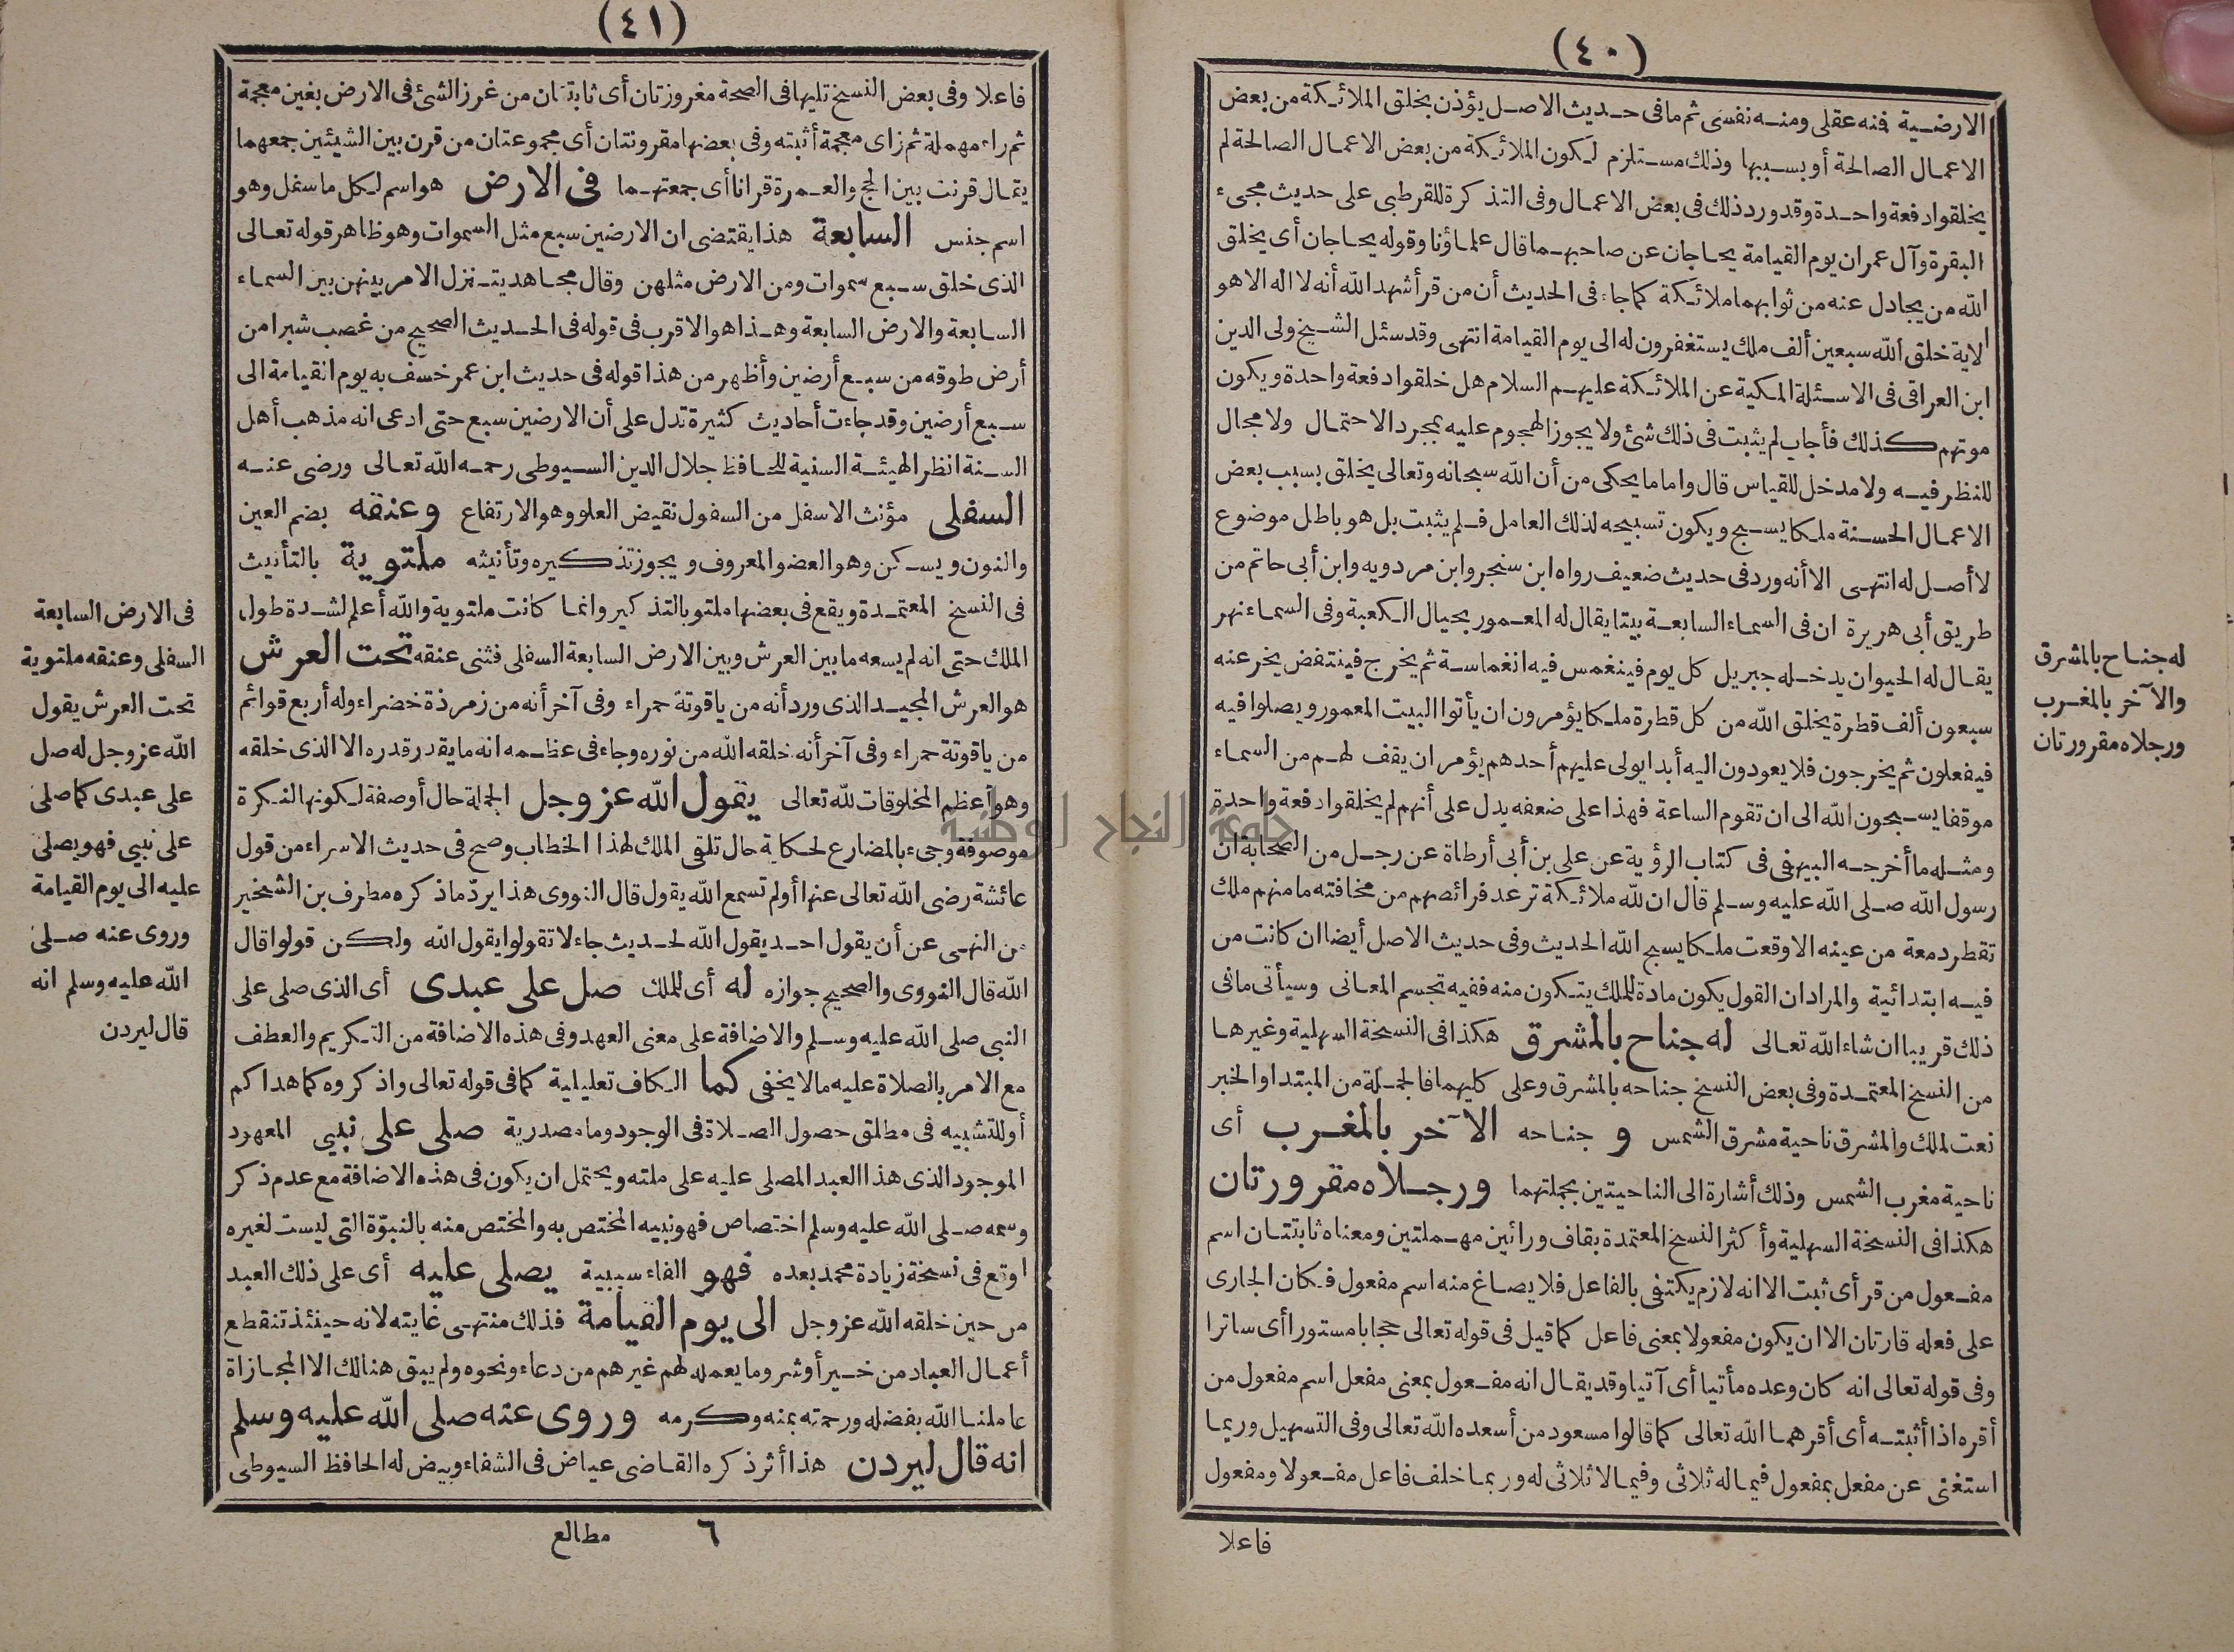 (٤٠)
الارضية فمنه عقلى ومنه نفسى ثم مافى حديث الاصل يؤذن بخلق الملائكة من بعض
الاعمال الصالحة أو بسببها وذلك مستلزم لكون الملائكة من بعض الاعمال الصالحة لم
يخلقوا دفعة واحدة وقد ورد ذلك فى بعض الاعمال وفى التذكرة للقرطبى على حديث مجىء
البقرة وآل عمران يوم القيامة يحاجان عن صاحبهما قال علماؤنا وقوله يحاجان أى يخلق
الله من يجادل عنه من ثوابهما ملائكة كما جاء فى الحديث أن من قرأ شهد الله أنه لا اله الا هو
الاية خلق الله سبعين ألف ملك يستغفرون له الى يوم القيامة انتهى وقد سئل الشيخ ولى الدين
ابن العراقى فى الاسئلة المكية عن الملائكة عليهم السلام هل خلقوا دفعة واحدة ويكون
موتهم كذلك فأجاب لم يثبت فى ذلك شئ ولا يجوز الهجوم عليه بمجرد الاحتمال ولا مجال
للنظر فيه ولا مدخل للقياس قال واما ما يحكى من أن الله سبحانه وتعالى يخلق بسبب بعض
الاعمال الحسنة ملكا يسبح ويكون تسبيحه لذلك العامل فلم يثبت بل هو باطل موضوع
لا أصل له انتهى الا أنه ورد فى حديث ضعيف رواه ابن سنجر وابن مردويه وابن أبى حاتم من
طريق أبى هريرة ان فى السماء السابعة بيتا يقال له المعمور بحيال الكعبة وفى السماء نهر
يقال له الحيوان يدخله جبريل كل يوم فينغمس فيه انغماسة ثم يخرج فينتفض يخر عنه
سبعون ألف قطرة يخلق الله من كل قطرة ملكا يؤمرون ان يأتوا البيت المعمور ويصلوا فيه
فيفعلون ثم يخرجون فلا يعودون اليه أبدا يولى عليهم أحدهم يؤمر ان يقف لهم من السماء
موقفا يسبحون الله الى ان تقوم الساعة فهذا على ضعفه يدل على أنهم لم يخلقوا دفعة واحدة
ومثله ما أخرجه البيهقى فى كتاب الرؤية عن على بن أبى أرطاة عن رجل من الصحابة ان
رسول الله صلى الله عليه وسلم قال ان لله ملائكة ترعد فرائصهم من مخافته ما منهم ملك
تقطر دمعة من عينه الا وقعت ملكا يسبح الله الحديث وفى حديث الاصل أيضا ان كانت من
فيه ابتدائية والمراد ان القول يكون مادة للملك يتكون منه ففيه تجسم المعانى وسيأتى مافى
ذلك قريبا ان شاء الله تعالى له جناح بالمشرق هكذا فى النسخة السهلية وغيرها
من النسخ المعتمدة وفى بعض النسخ جناحه بالمشرق وعلى كليهما فالجملة من المبتدا والخبر
نعت لملك والمشرق ناحية مشرق الشمس و جناحه الآخر بالمغرب أى
ناحية مغرب الشمس وذلك أشارة الى الناحيتين بجملتهما ورجلاه مقرورتان
هكذا فى النسخة السهلية وأكثر النسخ المعتمدة بقاف ورائين مهملتين ومعناه ثابتتان اسم
مفعول من قر أى ثبت الا انه لازم يكتفى بالفاعل فلا يصاغ منه اسم مفعول فكان الجارى
على فعله قارتان الا ان يكون مفعولا بمعنى فاعل كما قيل فى قوله تعالى حجابا مستورا أى ساترا
وفى قوله تعالى انه كان وعده مأتيا أى آتيا وقد يقال انه مفعول بمعنى مفعل اسم مفعول من
أقره اذا أثبته أى أقرهما الله تعالى كما قالوا مسعود من أسعده الله تعالى وفى التسهيل وربما
استغنى عن مفعل بمفعول فيما له ثلاثى وفيما لا ثلاثى له وربما خلف فاعل مفعولا ومفعول
فاعلا
له جناح بالمشرق
والآخر بالمغرب
ورجلاه مقرورتان
(٤١)
فاعلا وفى بعض النسخ تليها فى الصحة مغروزتان أى ثابتتان من غرز الشئ فى الارض بغين معجمة
ثم راء مهملة ثم زاى معجمة أثبته وفى بعضها مقرونتان أى مجموعتان من قرن بين الشيئين جمعهما
يقال قرنت بين الحج والعمرة قرانا أى جمعتهما فى الارض هو اسم لكل ما سفل وهو
اسم جنس السابعة هذا يقتضى ان الارضين سبع مثل السموات وهو ظاهر قوله تعالى
الذى خلق سبع سموات ومن الارض مثلهن وقال مجاهد يتنزل الامر بينهن بين السماء
السابعة والارض السابعة وهذا هو الاقرب فى قوله فى الحديث الصحيح من غصب شبرا من
أرض طوقه من سبع أرضين وأظهر من هذا قوله فى حديث ابن عمر خسف به يوم القيامة الى
سبع أرضين وقد جاءت أحاديث كثيرة تدل على أن الارضين سبع حتى ادعى انه مذهب أهل
السنة انظر الهيئة السنية للحافظ جلال الدين السيوطى رحمه الله تعالى ورضى عنه
السفلى مؤنث الاسفل من السفول نقيض العلو وهو الارتفاع وعنقه بضم العين
والنون ويسكن وهو العضو المعروف ويجوز تذكيره وتأنيثه ملتوية بالتأنيث
فى النسخ المعتمدة ويقع فى بعضها ملتو بالتذكير وانما كانت ملتوية والله أعلم لشدة طول
الملك حتى انه لم يسعه ما بين العرش وبين الارض السابعة السفلى فثنى عنقه تحت العرش
هو العرش المجيد الذى ورد أنه من ياقوتة حمراء وفى آخر أنه من زمرذة خضراء وله أربع قوائم
من ياقوتة حمراء وفى آخر أنه خلقه الله من نوره وجاء فى عظمه انه ما يقدر قدره الا الذى خلقه
وهو أعظم المخلوقات لله تعالى يقول الله عز وجل الجملة حال أو صفة لكونها النكرة
موصوفة وجىء بالمضارع لحكاية حال تلقى الملك لهذا الخطاب وصح فى حديث الاسراء من قول
عائشة رضى الله تعالى عنها أولم تسمع الله يقول قال النووى هذا يرد ما ذكره مطرف بن الشخير
من النهى عن أن يقول احد يقول الله لحديث جاء لا تقولوا يقول الله ولكن قولوا قال
الله قال النووى والصحيح جوازه له أى للملك صل على عبدى أى الذى صلى على
النبى صلى الله عليه وسلم والاضافة على معنى العهد وفى هذه الاضافة من التكريم والعطف
مع الامر بالصلاة عليه مالا يخفى كما الكاف تعليلية كما فى قوله تعالى واذكروه كما هداكم
أو للتشبيه فى مطلق حصول الصلاة فى الوجود وما مصدرية صلى على نبيى المعهود
الموجود الذى هذا العبد المصلى عليه على ملته ويحتمل ان يكون فى هذه الاضافة مع عدم ذكر
وسمه صلى الله عليه وسلم اختصاص فهو نبيه المختص به والمختص منه بالنبوّة التى ليست لغيره
اوقع فى نسخة زيادة محمد بعده فهو الفاء سببية يصلى عليه أى على ذلك العبد
من حين خلقه الله عز وجل الى يوم القيامة فذلك منتهى غايته لانه حينئذ تنقطع
أعمال العباد من خير أو شر وما يعمله لهم غيرهم من دعاء ونحوه ولم يبق هنالك الا المجازاة
عاملنا الله بفضله ورحمته بمنه وكرمه وروى عنه صلى الله عليه وسلم
انه قال ليردن هذا أثر ذكره القاضى عياض فى الشفاء وبيض له الحافظ السيوطى
٦ مطالع
فى الارض السابعة
السفلى وعنقه ملتوية
تحت العرش يقول
الله عز وجل له صل
على عبدى كما صلى
على نبيى فهو يصلى
عليه الى يوم القيامة
وروى عنه صلى
الله عليه وسلم انه
قال ليردن
جامعة النجاح الوطنية